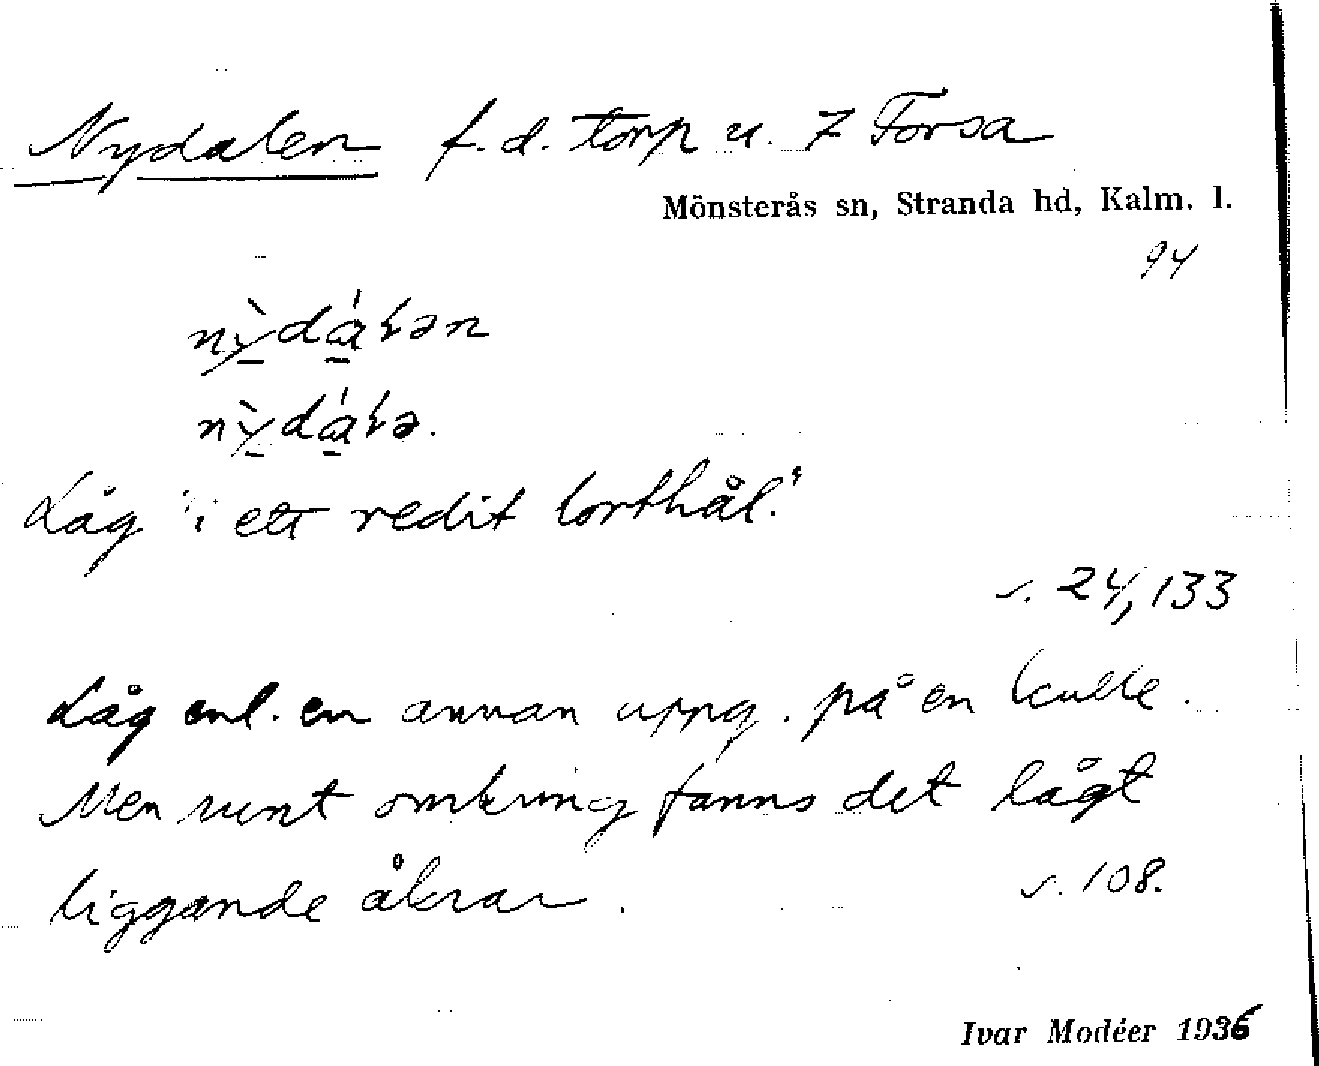 Nydalen f. d. torp u. 7 Forsa
Mönsterås sn, Stranda hd, Kalm. l.
94
nỳdálən
nỳdálə.
Låg "i ett redit lorthål."
s. 24, 133
Låg enl. en annan uppg. på en kulle.
Men runt omkring fanns det lågt
liggande åkrar.
s. 108.
Ivar Modéer 1936